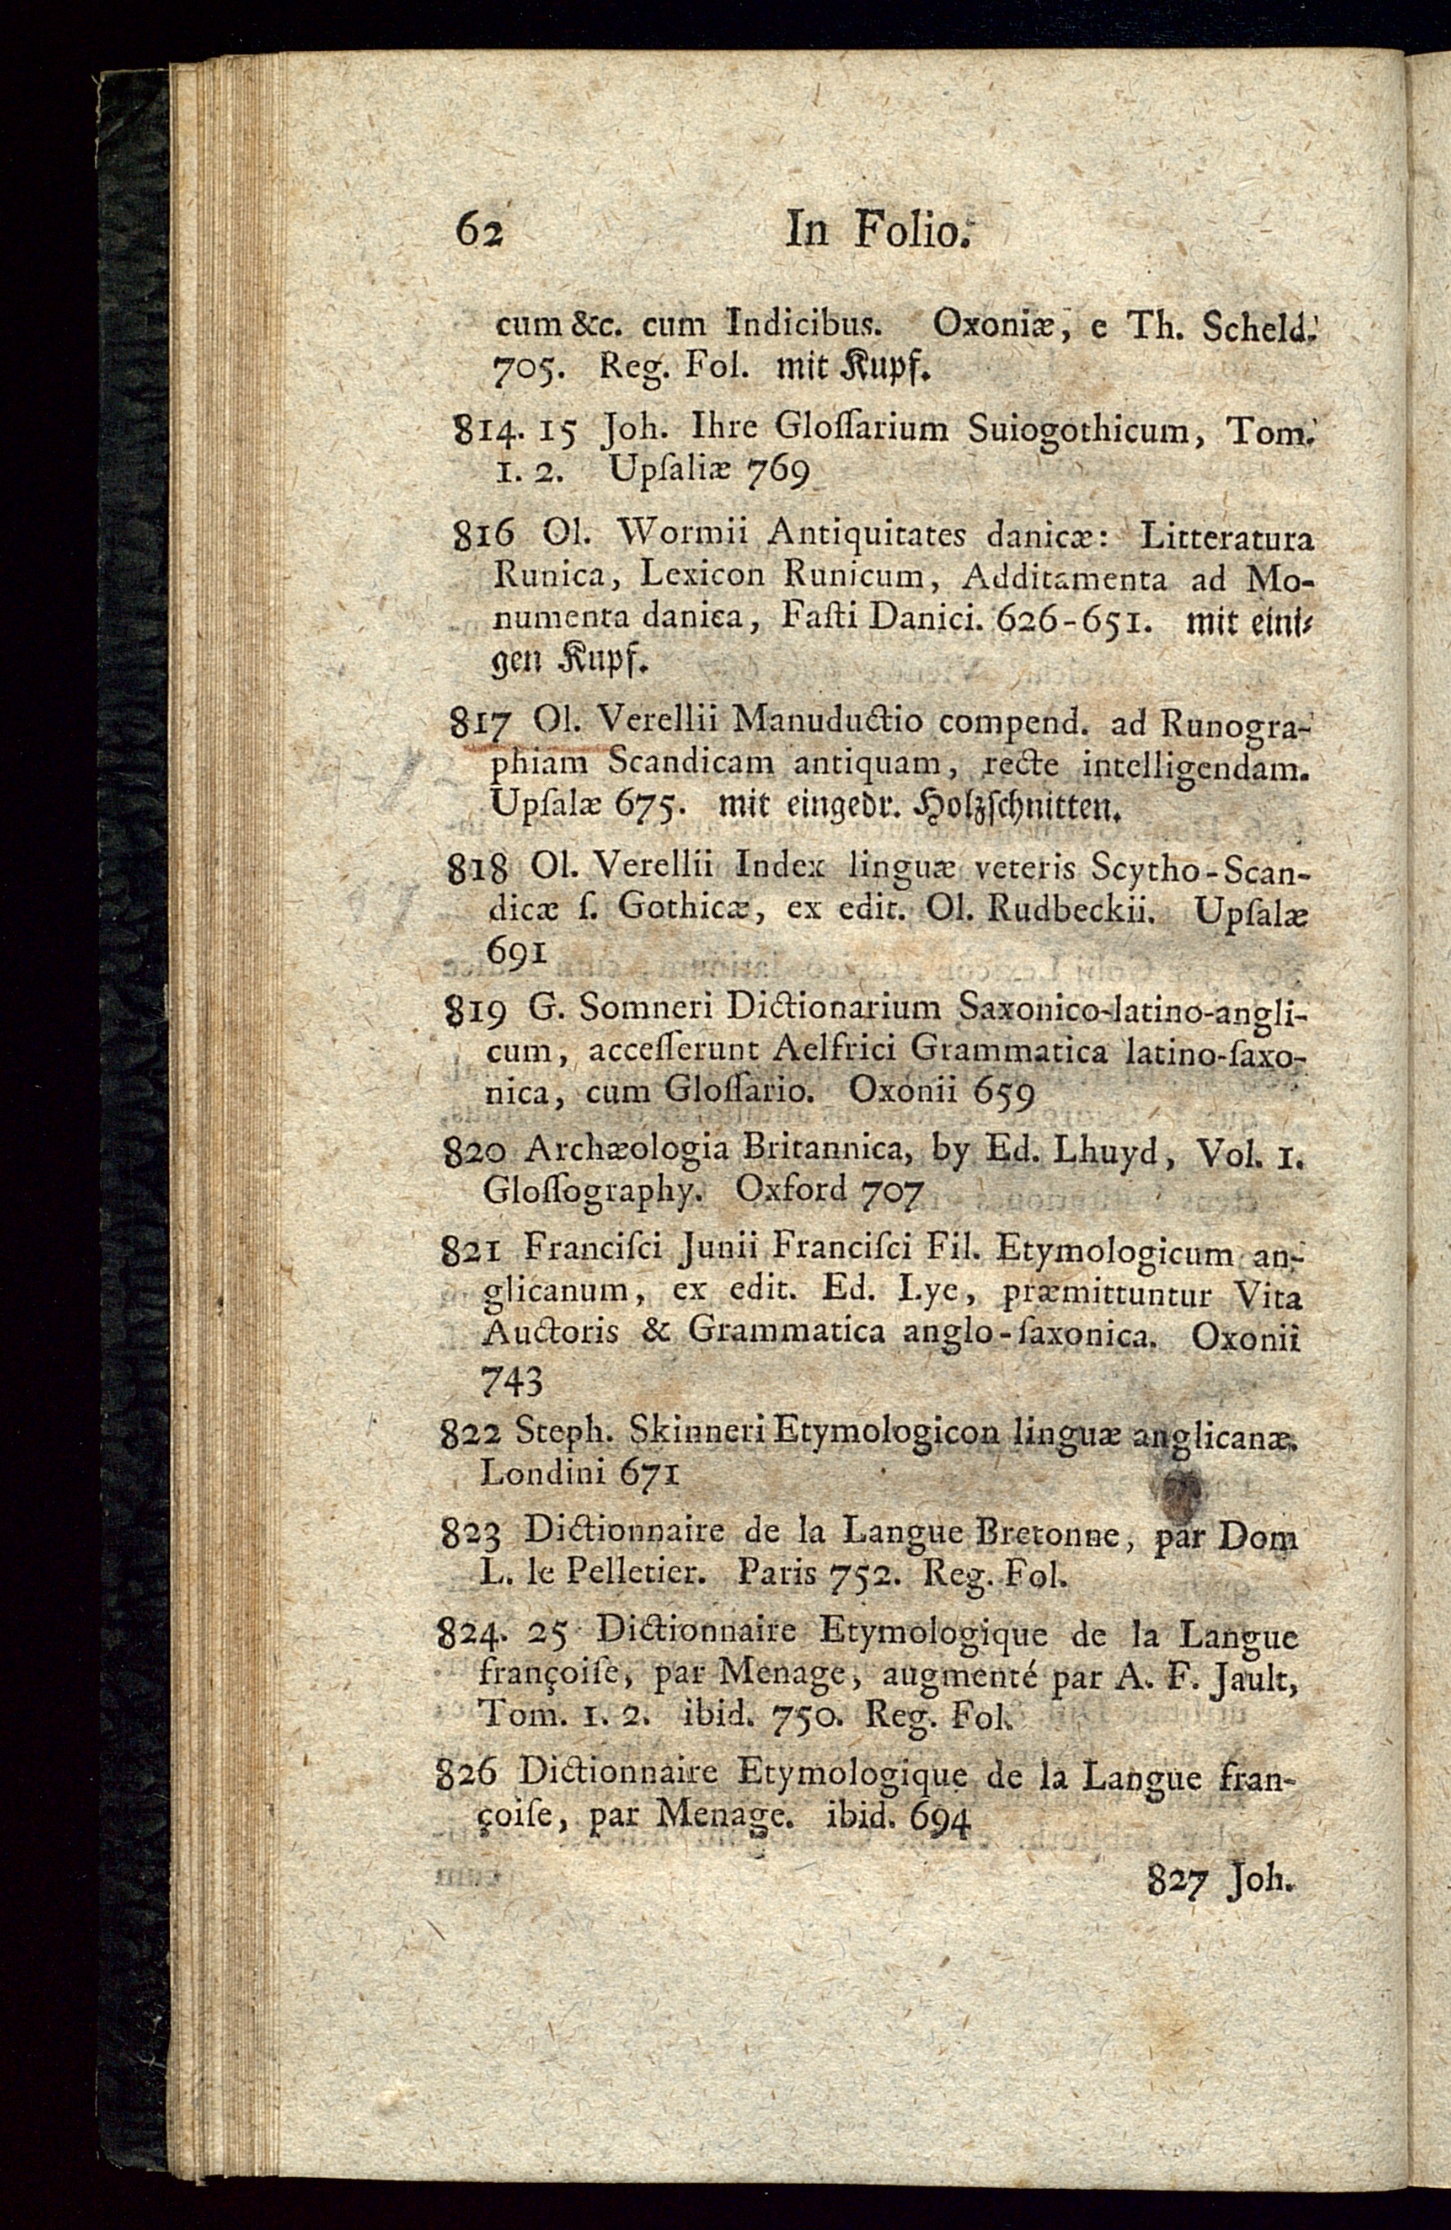 62 In Folio.
cum &c. cum Indicibus. Oxoniæ, e Th. Scheld.
705. Reg. Fol. mit Kupf.
814. 15 Joh. Ihre Gloſſarium Suiogothicum, Tom.
1. 2. Upſaliæ 769
816 Ol. Wormii Antiquitates danicæ: Litteratura
Runica, Lexicon Runicum, Additamenta ad Mo-
numenta danica, Faſti Danici. 626-651. mit eini-
gen Kupf.
817 Ol. Verellii Manuductio compend. ad Runogra-
phiam Scandicam antiquam, recte intelligendam.
Upſalæ 675. mit eingedr. Holzſchnitten.
818 Ol. Verellii Index linguæ veteris Scytho-Scan-
dicæ ſ. Gothicæ, ex edit. Ol. Rudbeckii. Upſalæ
691
819 G. Somneri Dictionarium Saxonico-latino-angli-
cum, acceſſerunt Aelfrici Grammatica latino-ſaxo-
nica, cum Gloſſario. Oxonii 659
820 Archæologia Britannica, by Ed. Lhuyd, Vol. 1.
Gloſſography. Oxford 707
821 Franciſci Junii Franciſci Fil. Etymologicum an-
glicanum, ex edit. Ed. Lye, præmittuntur Vita
Auctoris & Grammatica anglo-ſaxonica. Oxonii
743
822 Steph. Skinneri Etymologicon linguæ anglicanæ.
Londini 671
823 Dictionnaire de la Langue Bretonne, par Dom
L. le Pelletier. Paris 752. Reg. Fol.
824. 25 Dictionnaire Etymologique de la Langue
françoiſe, par Menage, augmenté par A. F. Jault,
Tom. 1. 2. ibid. 750. Reg. Fol.
826 Dictionnaire Etymologique de la Langue fran-
çoiſe, par Menage. ibid. 694
827 Joh.